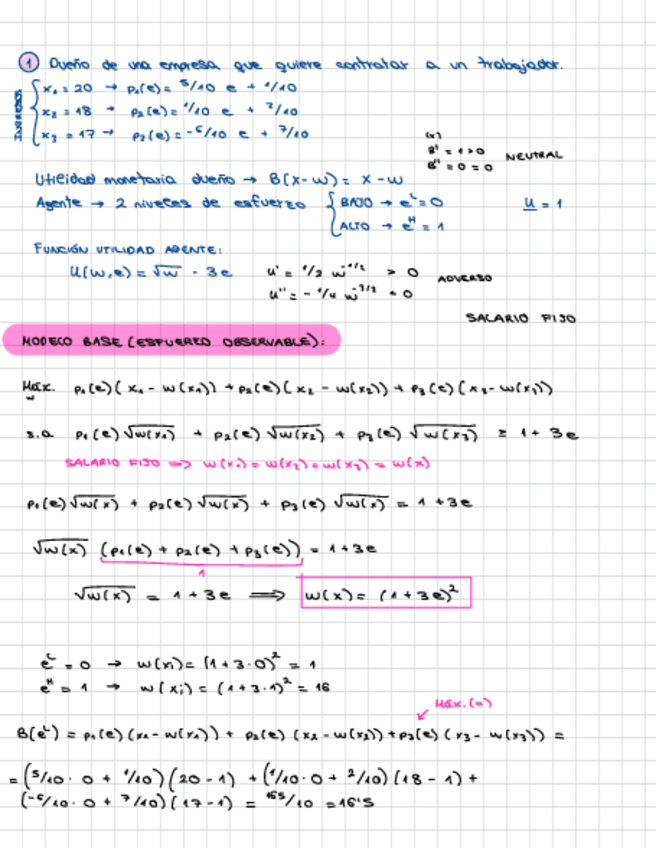 ① Dueño de una empresa que quiere contratar a un trabajador.
INGRESOS
x₁ = 20 → p₁(e) = 5/10 e + 1/10
x₂ = 18 → p₂(e) = 1/10 e + 2/10
x₃ = 17 → p₃(e) = -6/10 e + 7/10
B' = 1 > 0
B'' = 0 = 0
NEUTRAL
Utilidad monetaria dueño → B(x-w) = x - w
Agente → 2 niveles de esfuerzo { BAJO → e^L = 0
ALTO → e^H = 1
U = 1
FUNCIÓN UTILIDAD AGENTE:
U(w,e) = √w - 3e
u' = 1/2 w^-1/2 > 0
u'' = - 1/4 w^-3/2 < 0
ADVERSO
SALARIO FIJO
MODELO BASE (ESFUERZO OBSERVABLE):
Máx. w p₁(e)(x₁ - w(x₁)) + p₂(e)(x₂ - w(x₂)) + p₃(e)(x₃ - w(x₃))
s.a p₁(e)√w(x₁) + p₂(e)√w(x₂) + p₃(e)√w(x₃) ≥ 1 + 3e
SALARIO FIJO => w(x₁) = w(x₂) = w(x₃) = w(x)
p₁(e)√w(x) + p₂(e)√w(x) + p₃(e)√w(x) = 1 + 3e
√w(x) (p₁(e) + p₂(e) + p₃(e)) = 1 + 3e
1
√w(x) = 1 + 3e ⟹ w(x) = (1 + 3e)²
e^L = 0 → w(xi) = (1 + 3·0)² = 1
e^H = 1 → w(xi) = (1 + 3·1)² = 16
Máx. (e)
B(e^L) = p₁(e)(x₁ - w(x₁)) + p₂(e)(x₂ - w(x₂)) + p₃(e)(x₃ - w(x₃)) =
= (5/10 · 0 + 1/10)(20 - 1) + (1/10 · 0 + 2/10)(18 - 1) +
(-6/10 · 0 + 7/10)(17 - 1) = 165/10 = 16'5